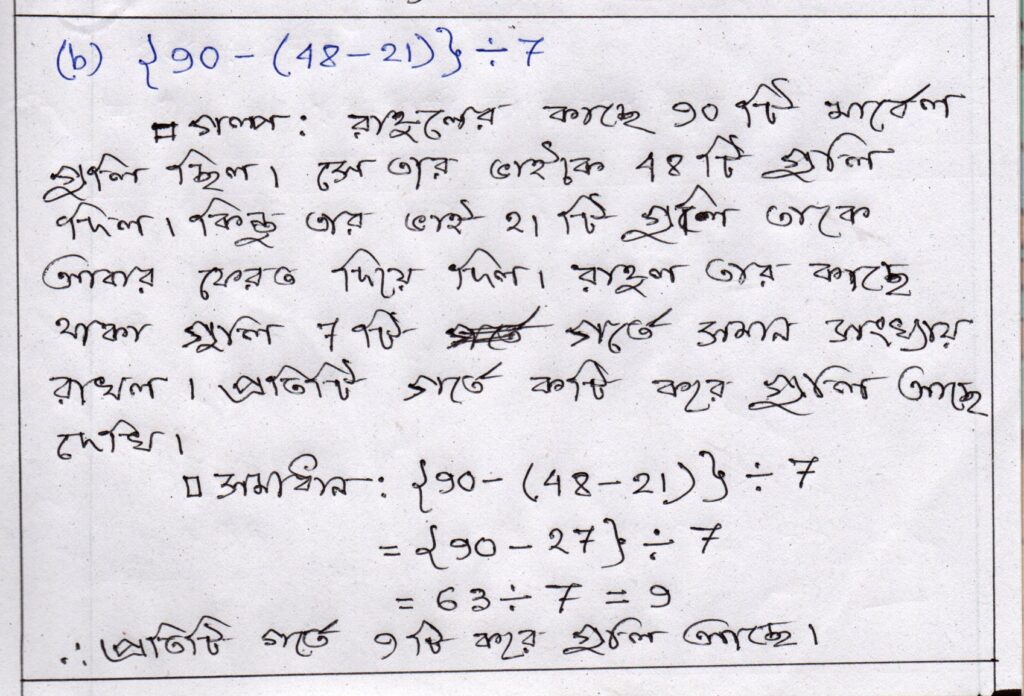 (b) {90 - (48-21)} ÷ 7
গল্প : রাহুলের কাছে 90 টি মার্বেল
গুলি ছিল। সে তার ভাইকে 48 টি গুলি
দিল। কিন্তু তার ভাই 21 টি গুলি তাকে
আবার ফেরত দিয়ে দিল। রাহুল তার কাছে
থাকা গুলি 7 টি গর্তে সমান সংখ্যায়
রাখল। প্রতিটি গর্তে কটি করে গুলি আছে
দেখি।
সমাধান : {90 - (48-21)} ÷ 7
= {90 - 27} ÷ 7
= 63 ÷ 7 = 9
∴ প্রতিটি গর্তে 9 টি করে গুলি আছে।